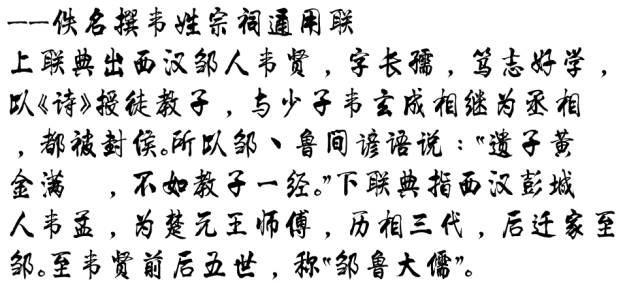 ——佚名撰韦姓宗祠通用联
上联典出西汉邹人韦贤，字长孺，笃志好学，
以《诗》授徒教子，与少子韦玄成相继为丞相
，都被封侯。所以邹、鲁间谚语说："遗子黄
金满　，不如教子一经。"下联典指西汉彭城
人韦孟，为楚元王师傅，历相三代，后迁家至
邹。至韦贤前后五世，称"邹鲁大儒"。